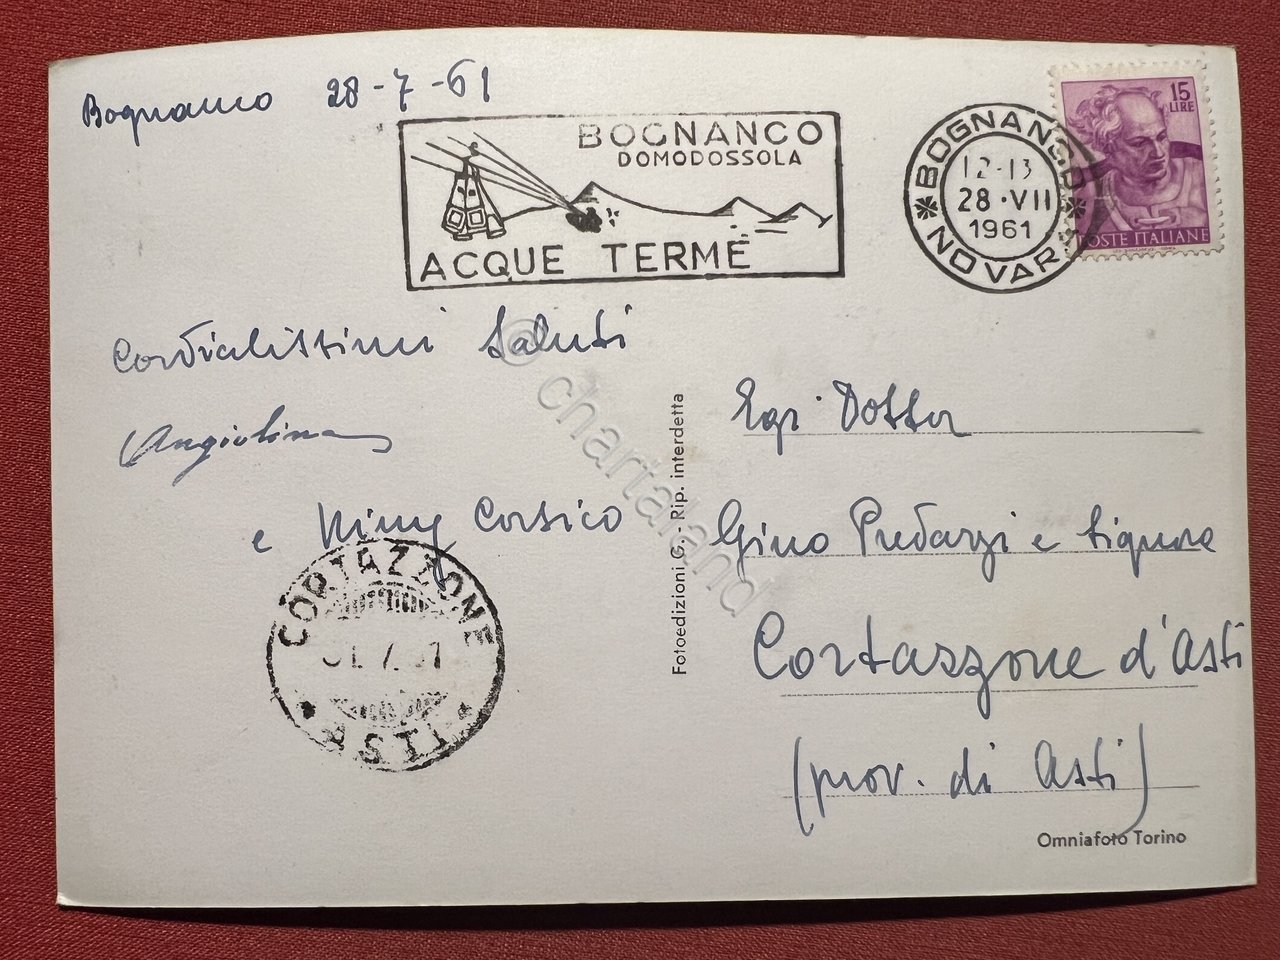 Bognanco 28-7-61
BOGNANCO
DOMODOSSOLA
ACQUE TERME
BOGNANCO
12-13
28·VII
1961
* NOVARA *
15
LIRE
POSTE ITALIANE
Cordialissimi Saluti
Angiolina
e Niny Corsico
CORTAZZONE
* ASTI *
Fotoedizioni G. - Rip. interdetta
© chartaland
Egr. Dottor
Gino Predazzi e Signora
Cortazzone d'Asti
(prov. di Asti)
Omniafoto Torino